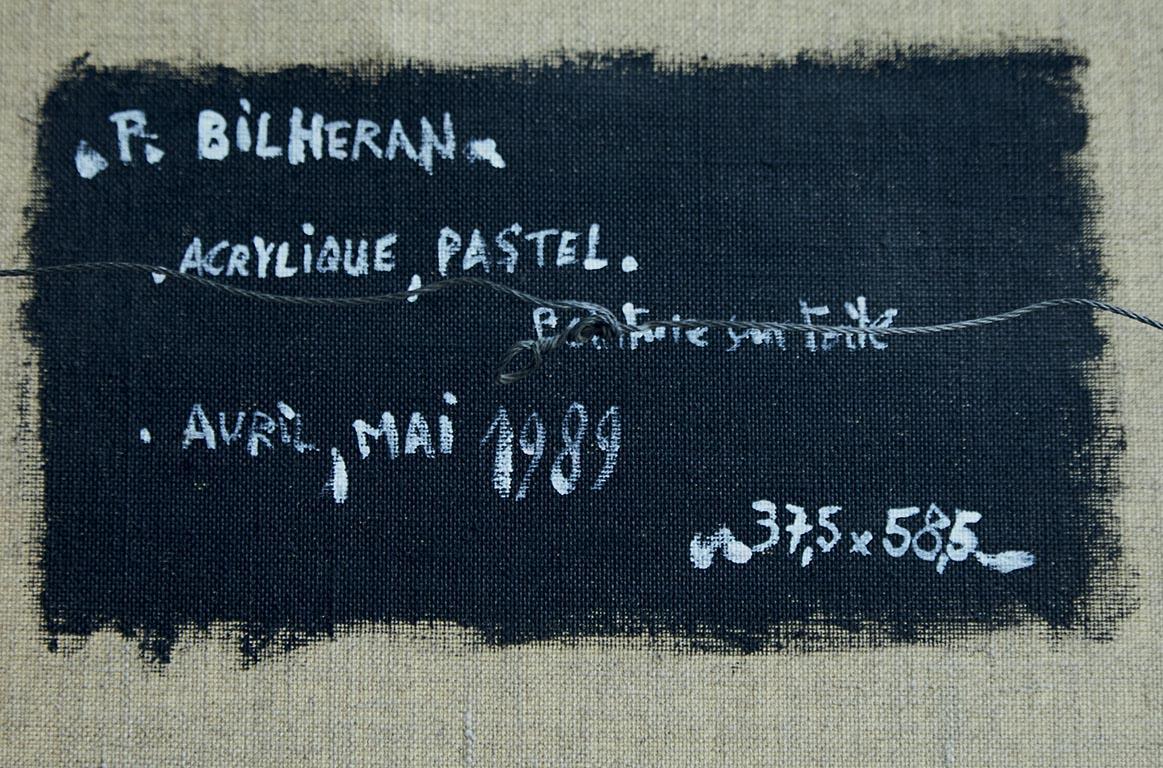 P. BiLHERAN
. ACRYLiQUE, PASTEL.
Peinture sur toile
. AVRiL, MAi 1989
37,5 x 58,5